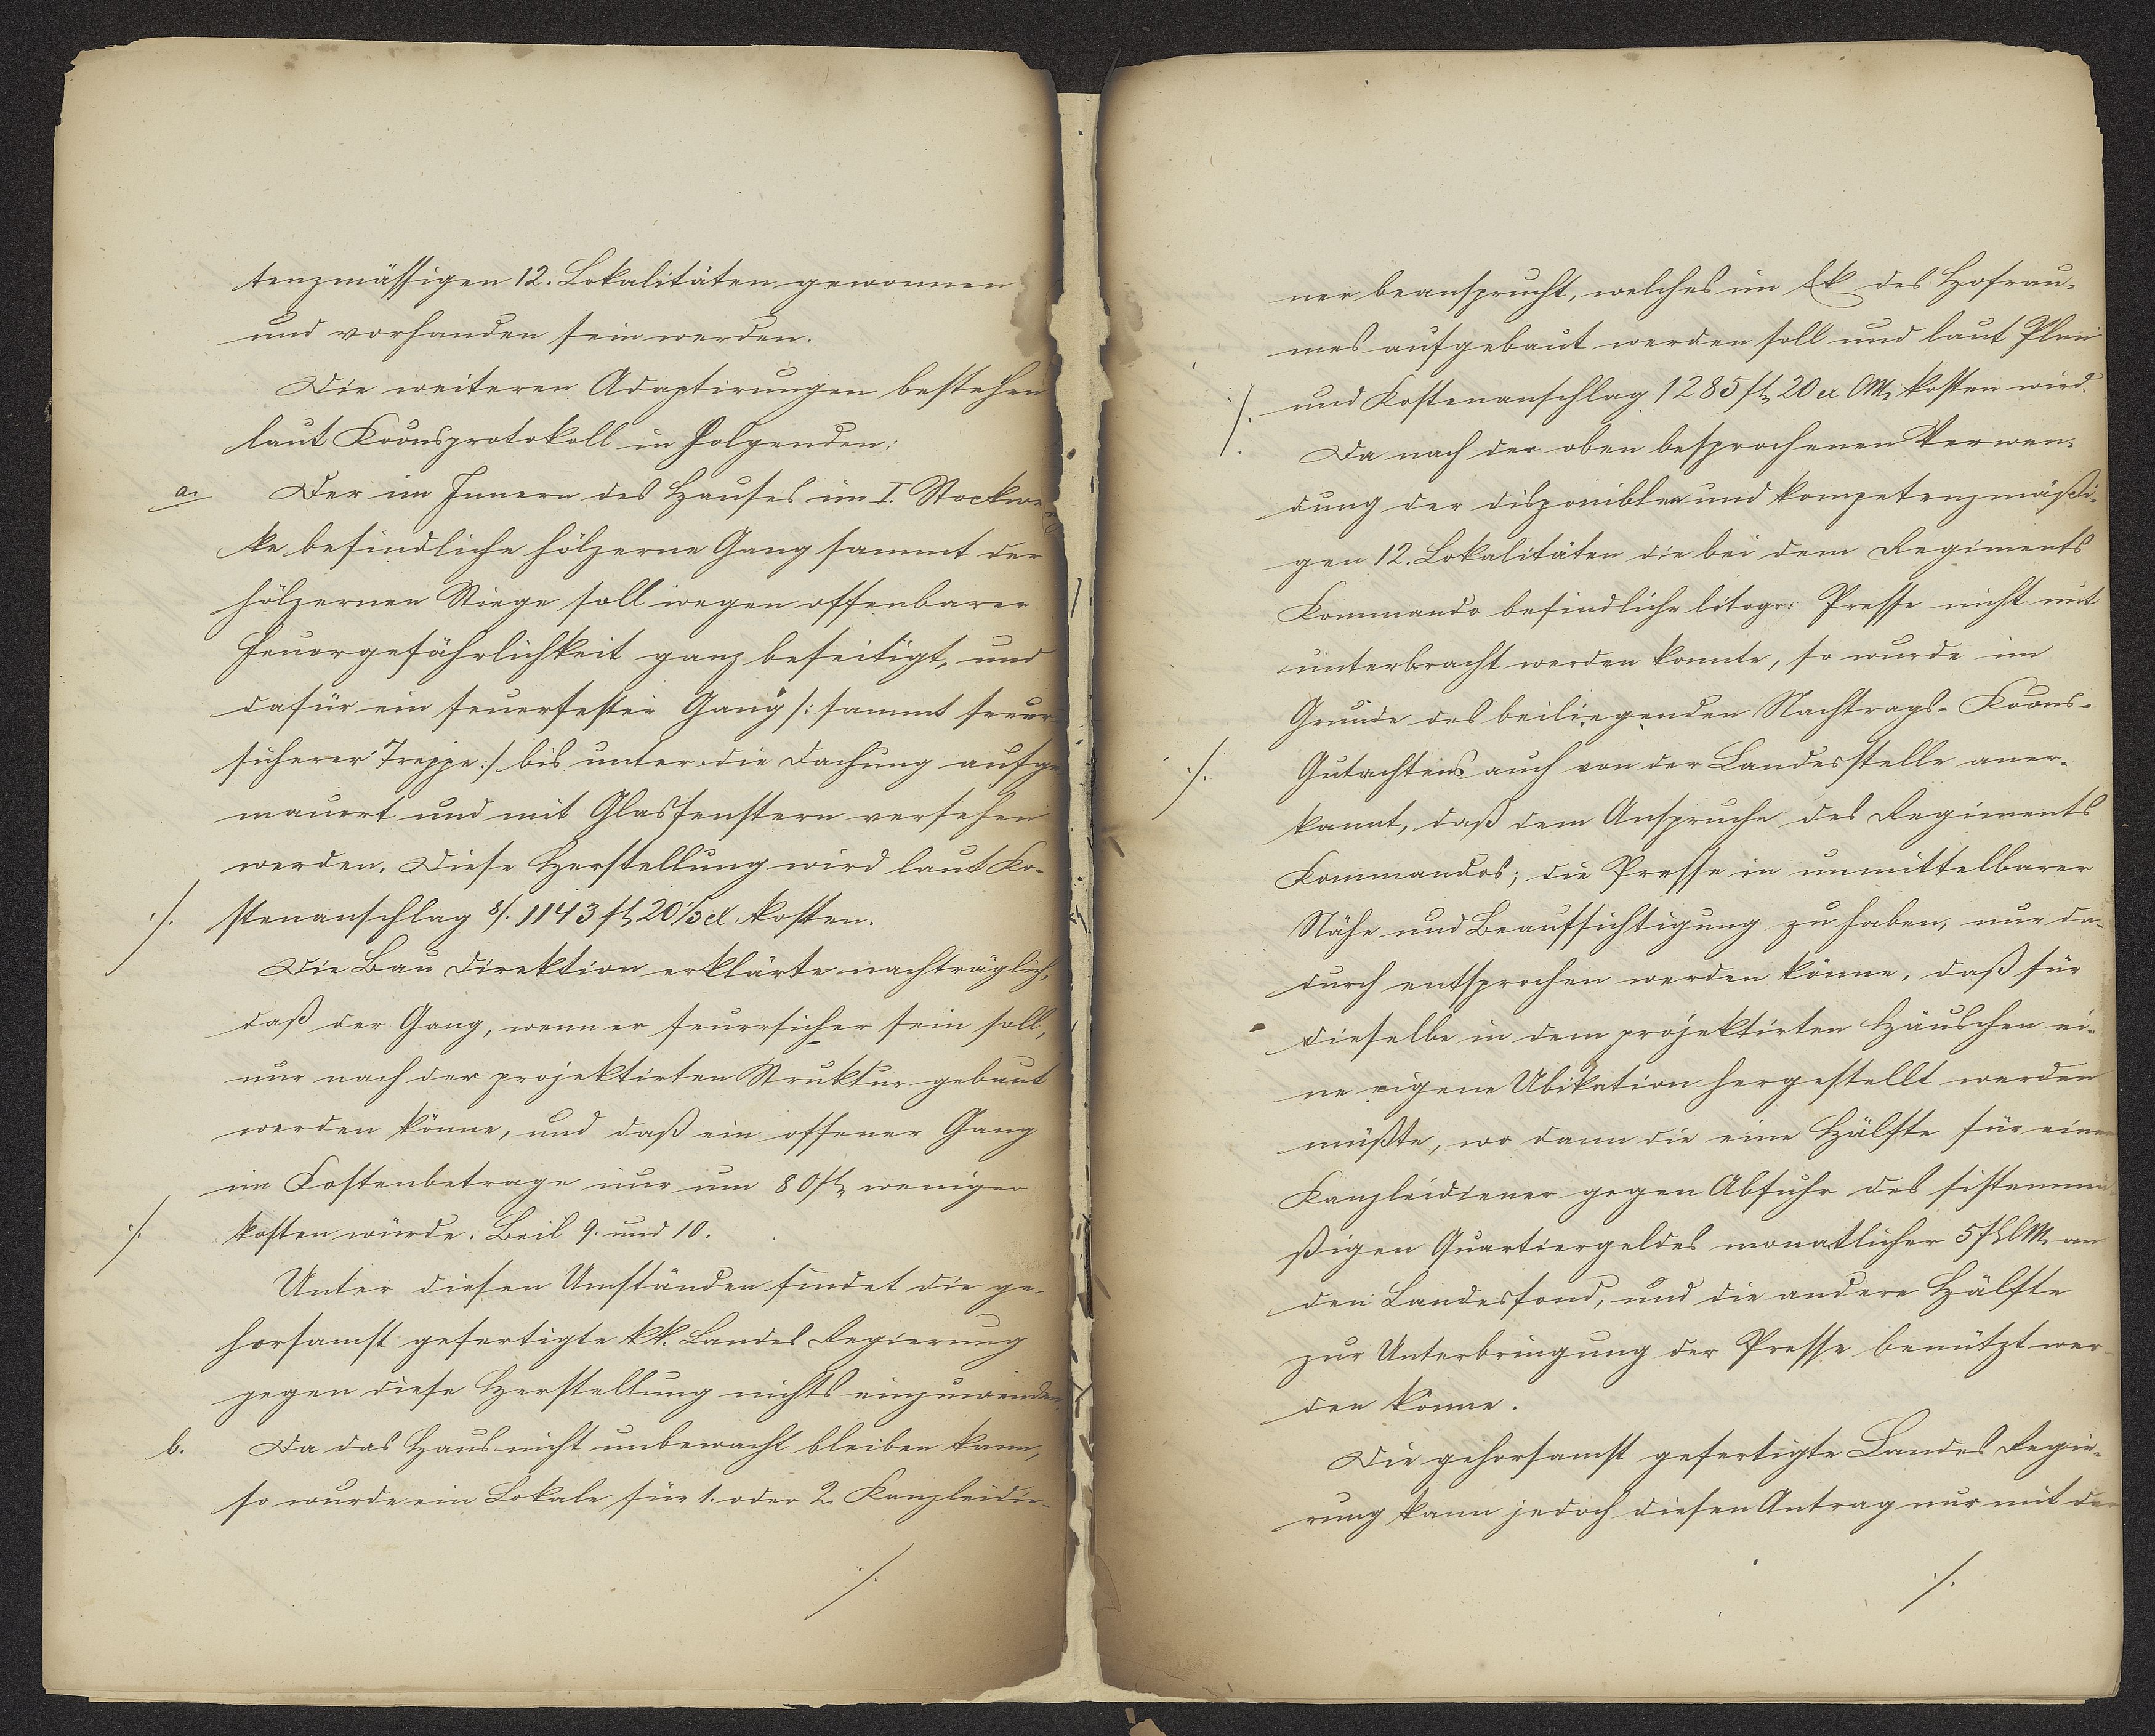 tenzmässigen 12. Lokalitäten gewonnen
und vorhanden sein werden.
Die weiteren Adaptirungen bestehen
laut Koonsprotokoll in Folgenden:
a. Der im Innern des Hauses im I. Stockwer
ke befindliche hölzerne Gang sammt der
hölzernen Stiege soll wegen offenbarer
Feuergefährlichkeit ganz beseitigt, und
dafür ein feuerfester Gang /: sammt feuer-
sicherer Treppe :/ bis unter die Dachung aufge
mauert und mit Glasfenstern versehen
werden. Diese Herstellung wird laut Ko-
./. stenanschlag 8/. 1143 fl 20 1/3 x. kosten.
Die Bau Direktion erklärte nachträglich,
daß der Gang, wenn er feuersicher sein soll,
nur nach der projektirten Struktur gebaut
werden könne, und daß ein offener Gang
im Kostenbetrage nur um 80 fl weniger
./. kosten würde. Beil 9. und 10.
Unter diesen Umständen findet die ge-
horsamst gefertigte kk. Landes Regierung
gegen diese Herstellung nichts einzuwenden.
b. Da das Haus nicht unbewacht bleiben kann,
so wurde ein Lokale für 1. oder 2. Kanzleidie-
./.
ner beansprucht, welches im Ek des Hofrau-
mes aufgebaut werden soll und laut Plan
./. und Kostenanschlag 1285 fl 20 x CM. kosten wird.
Da nach der oben besprochenen Verwen-
dung der disponiblen und kompetenzmäßi-
gen 12. Lokalitäten die bei dem Regiments
Kommando befindliche litogr: Presse nicht mit
unterbracht werden konnte, so wurde im
Grunde des beiliegenden Nachtrags-Koons-
./. Gutachtens auch von der Landesstelle aner-
kannt, daß dem Anspruche des Regiments
Kommandos; die Presse in unmittelbarer
Nähe und Beaufsichtigung zu haben, nur da-
durch entsprochen werden könne, daß für
dieselbe in dem projektirten Häuschen ei-
ne eigene Ubikation hergestellt werden
müßte, wo dann die eine Hälfte für einen
Kanzleidiener gegen Abfuhr des sistemmä-
ßigen Quartiergeldes monatlicher 5 fl CM. an
den Landesfond, und die andere Hälfte
zur Unterbringung der Presse benützt wer-
den könne.
Die gehorsamst gefertigte Landes Regie-
rung kann jedoch diesen Antrag nur mit der
./.